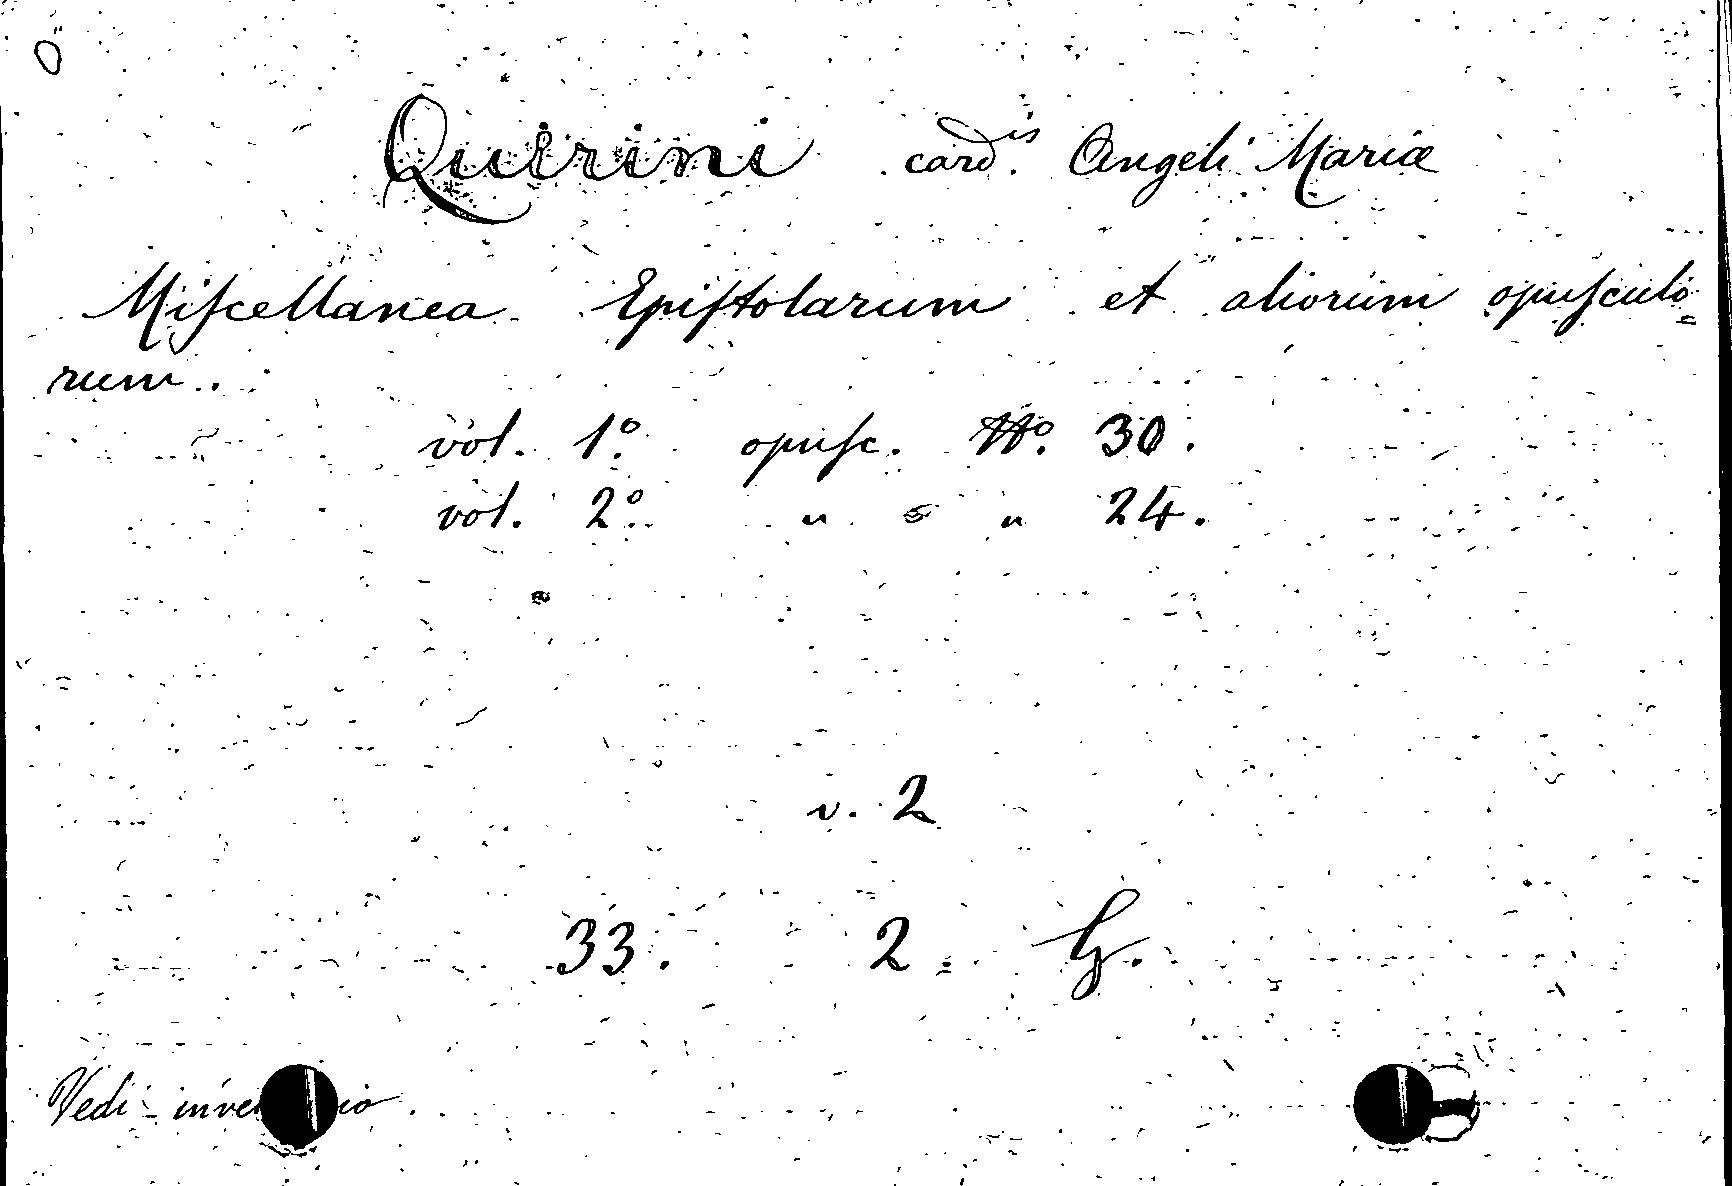 Quirini card.is Angeli Mariæ
Miſcellanea Epiſtolarum et aliorum opuſculo=
rum.
vol. 1º. opuſc. Nº. 30.
vol. 2º. " " 24.
v. 2
33. 2. G.
Vedi inve io